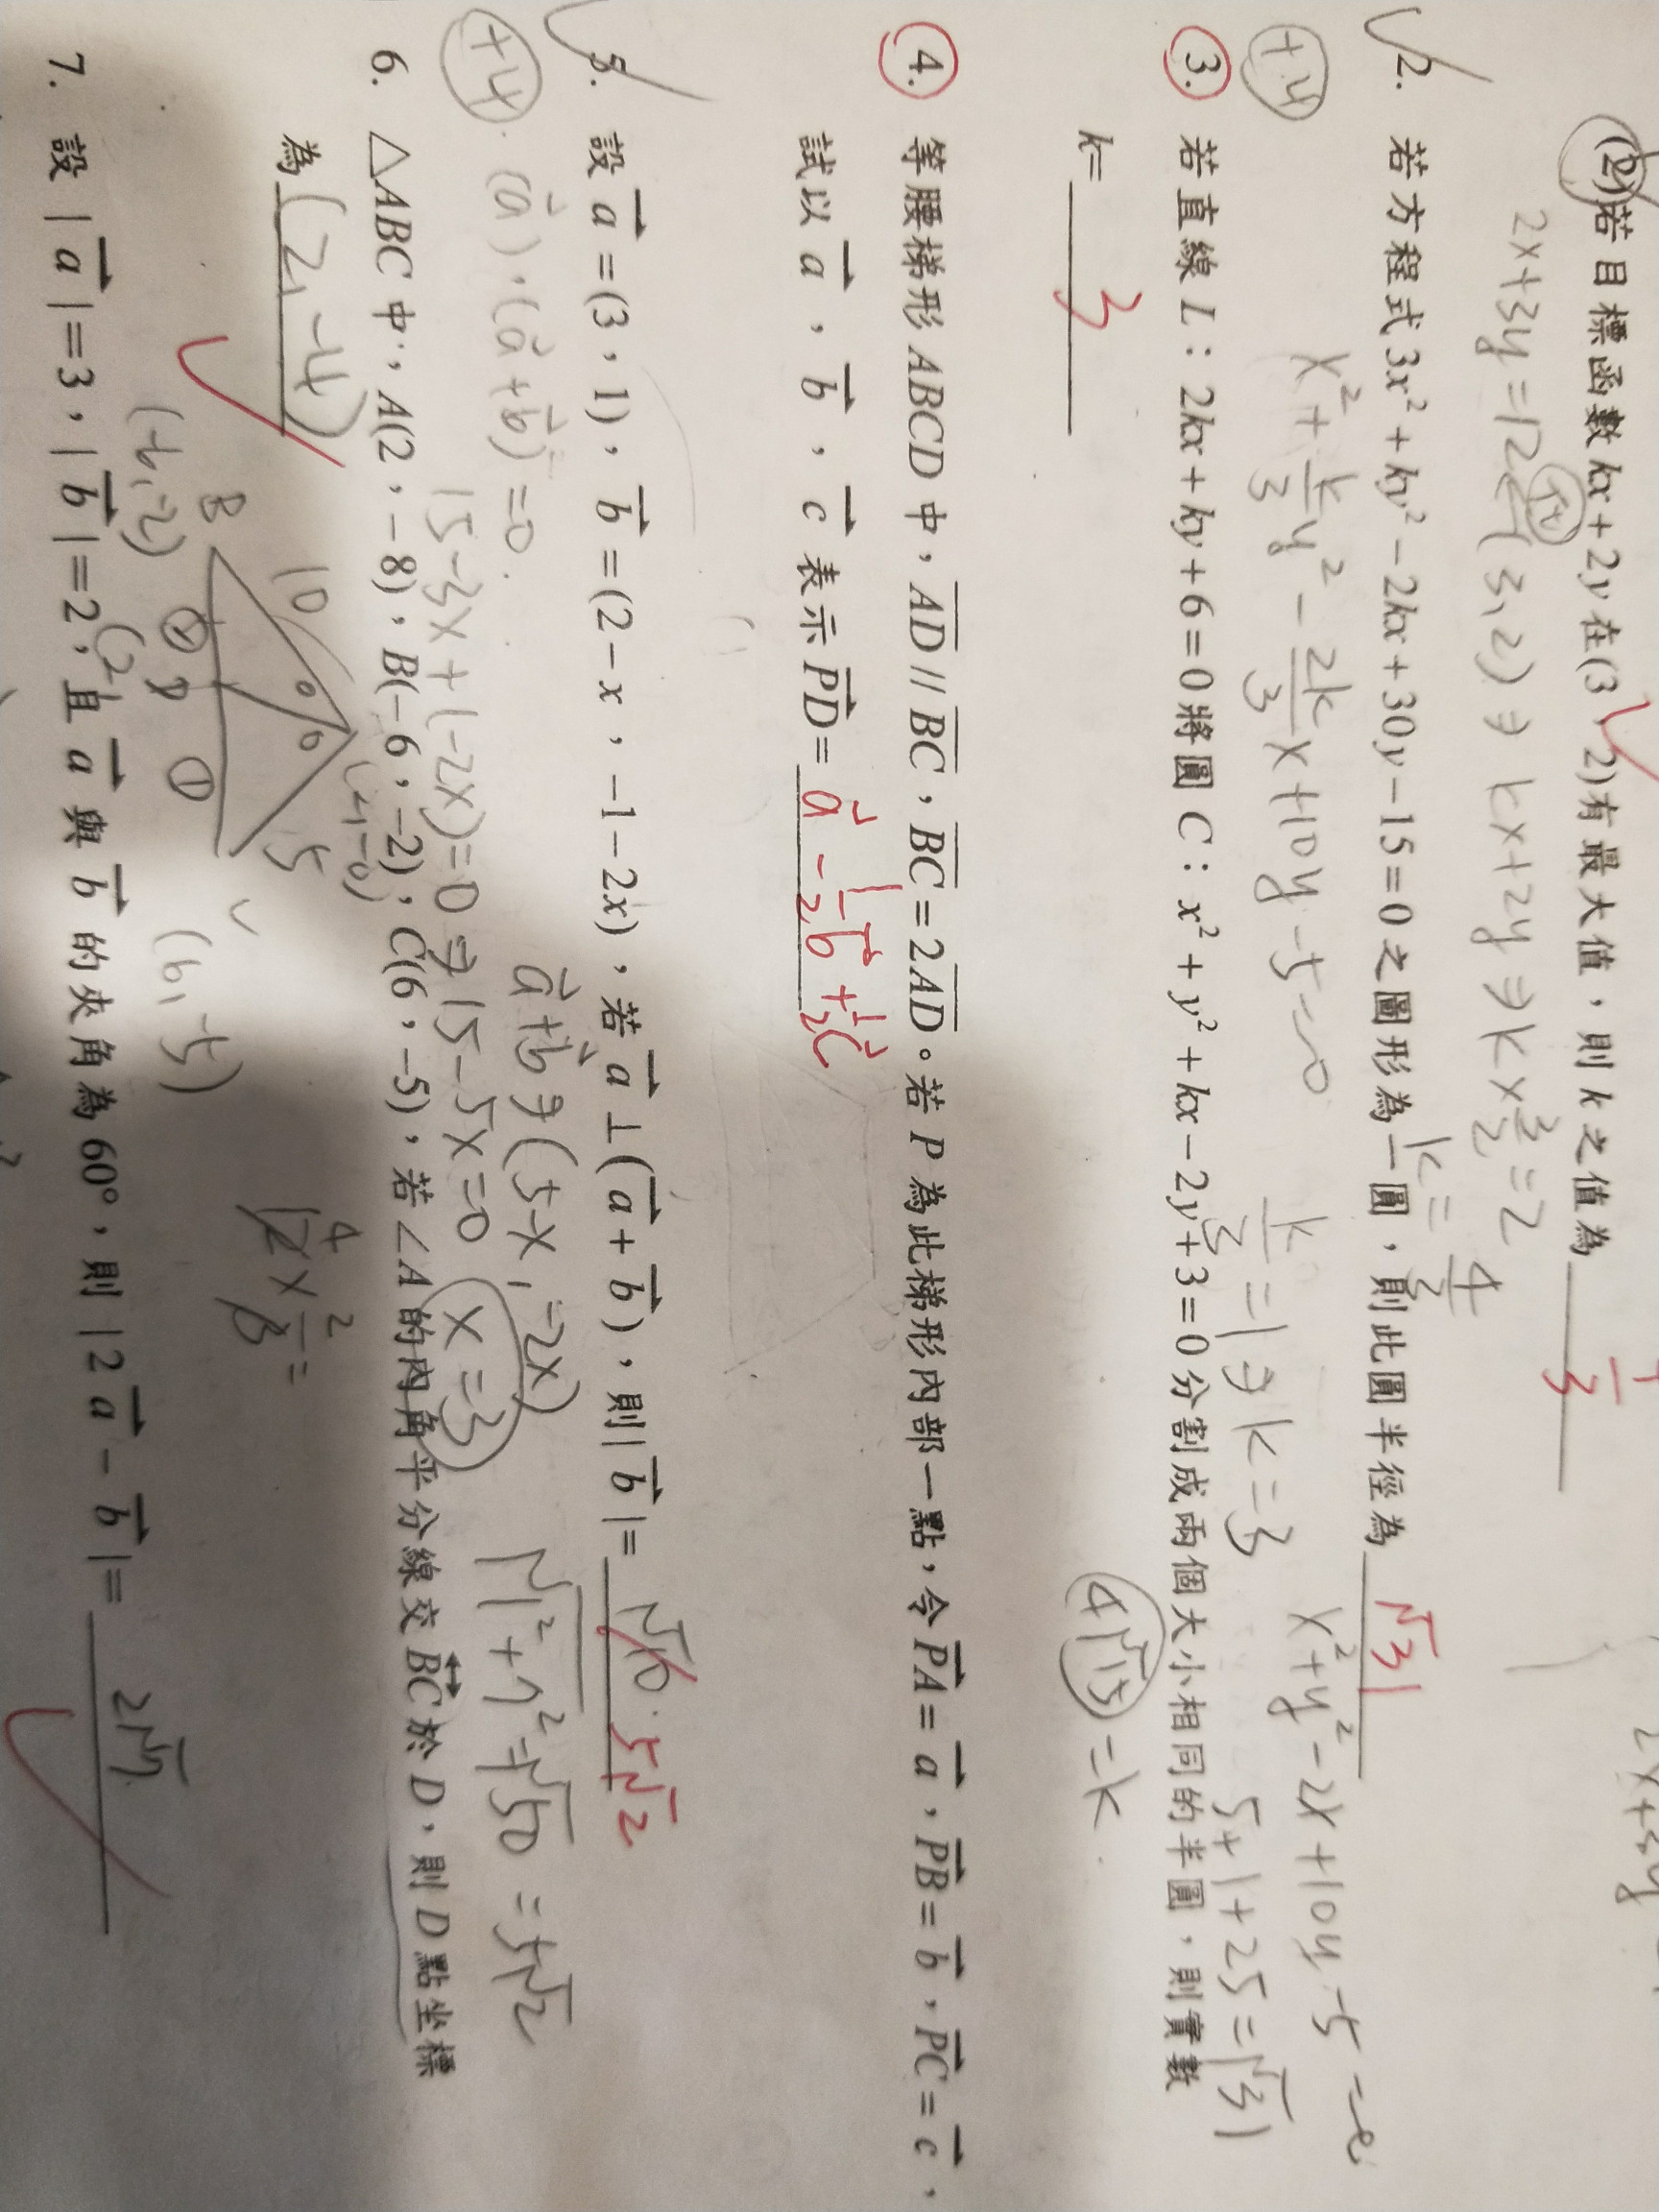 (2)若目標函數kx+2y在(3,2)有最大值,則k之值為
+4
2x+3y=12
(3,2) ⇒ kx+2y ⇒ k×3/2=2
k=4/3
3
2. 若方程式3x²+ky²−2kx+30y−15=0之圖形為一圓,則此圓半徑為 √31
+4
x²+k/3y²−2k/3x+10y−5=0
k/3=1 ⇒ k=3
x²+y²−2x+10y−5=0
5+1+25=√31
3. 若直線L:2kx+ky+6=0將圓C:x²+y²+kx−2y+3=0分割成兩個大小相同的半圓,則實數
k= 3
4√15=k
4. 等腰梯形ABCD中,AD//BC,BC=2AD。若P為此梯形內部一點,令PA=a,PB=b,PC=c,
試以a,b,c表示PD= a−1/2b+1/2c
5. 設a=(3,1),b=(2−x,−1−2x),若a⊥(a+b),則|b|= √10 5√2
+4
(a)·(a+b)=0
a+b ⇒ (5−x,−2x)
√1²+7²=√50=5√2
15−3x+(−2x)=0 ⇒ 15−5x=0 x=3
6. △ABC中,A(2,−8),B(−6,−2),C(6,−5),若∠A的內角平分線交BC於D,則D點坐標
為 (2,−4)
10
5
B
(−6,−2)
D
①
(6,−5)
7. 設|a|=3,|b|=2,且a與b的夾角為60°,則|2a−b|= 2√7